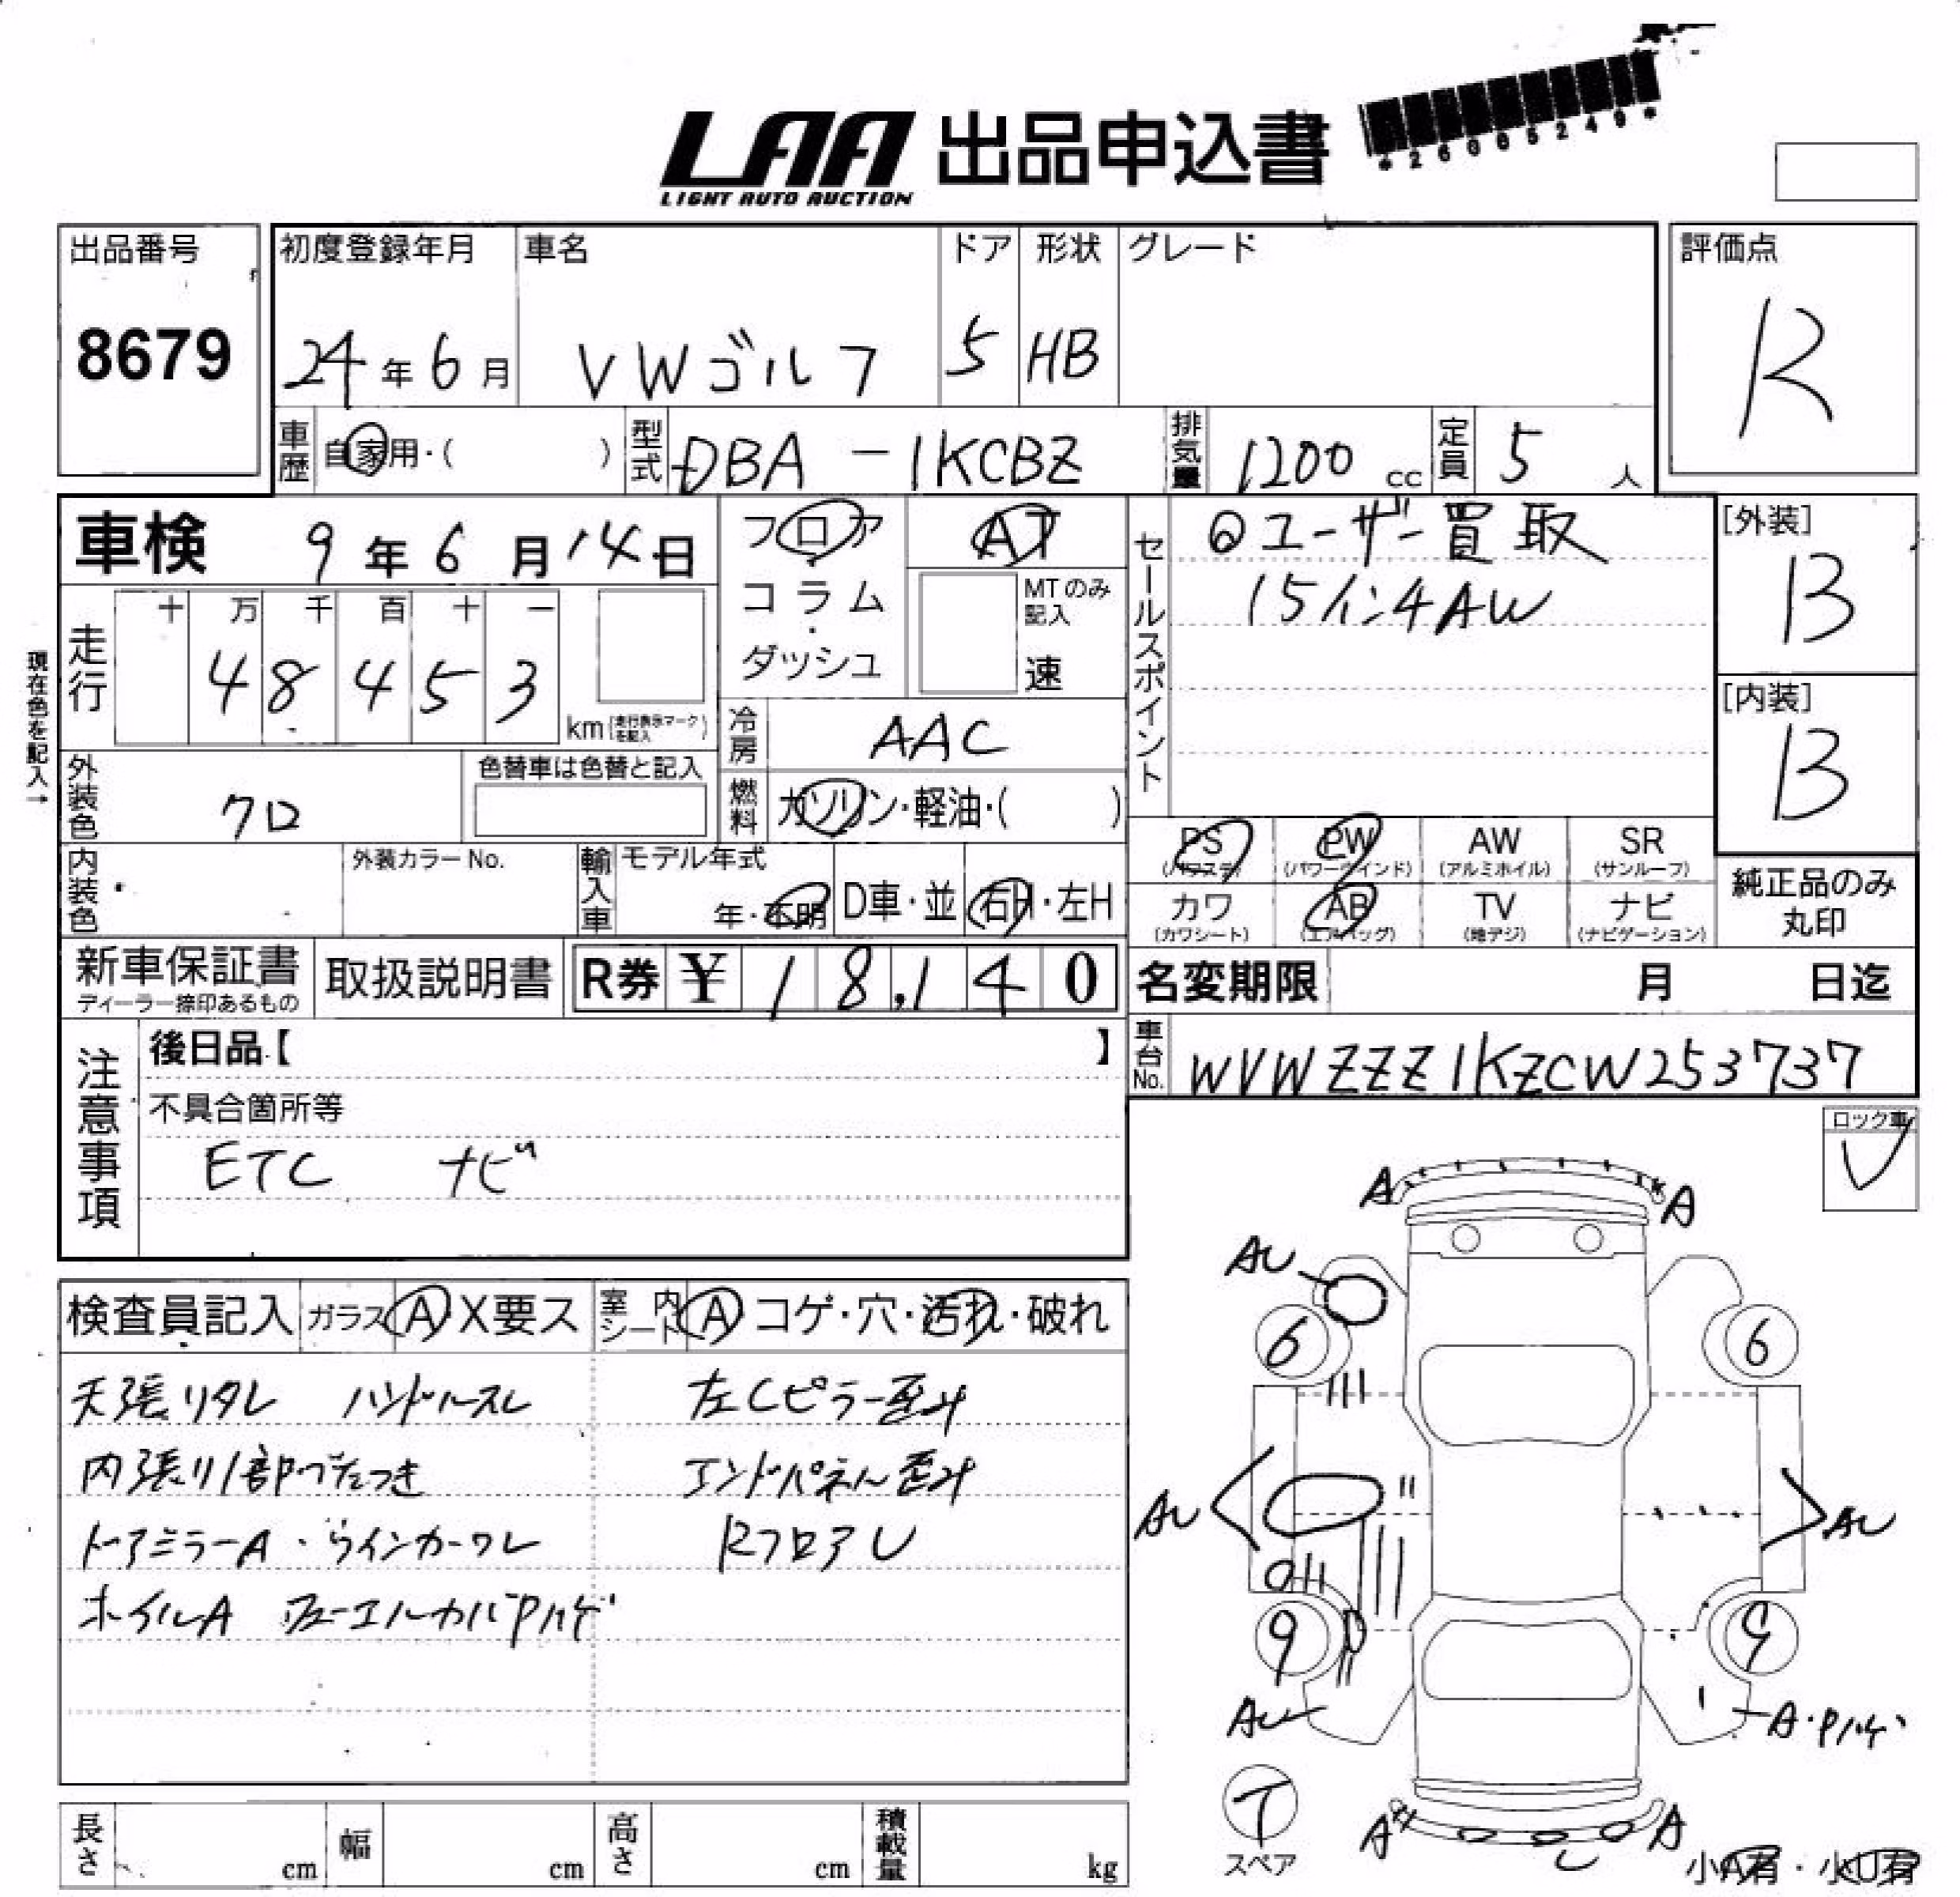 LAA 出品申込書
LIGHT AUTO AUCTION
*26005249*
出品番号
8679
初度登録年月
24年6月
車名
VWゴルフ
ドア
5
形状
HB
グレード
評価点
R
車歴 自家用・( )
型式 DBA-1KCBZ
排気量 1200 cc
定員 5 人
車検 9年6月14日
フロア・コラム・ダッシュ
AT
MTのみ記入
速
セールスポイント
◎ユーザー買取
15インチAW
[外装]
B
[内装]
B
現在色を記入→
走行
十 万 千 百 十 一
4 8 4 5 3
km(走行表示マークを記入)
冷房 AAC
燃料 ガソリン・軽油・( )
外装色 クロ
色替車は色替と記入
内装色
外装カラーNo.
輸入車 モデル年式
年・不明
D車・並
右H・左H
PS (パワステ)
PW (パワーウインド)
AW (アルミホイル)
SR (サンルーフ)
カワ (カワシート)
AB (エアバッグ)
TV (地デジ)
ナビ (ナビゲーション)
純正品のみ
丸印
新車保証書
ディーラー捺印あるもの
取扱説明書
R券 ¥ 18,140
名変期限 月 日迄
車台No. WVWZZZ1KZCW253737
注意事項
後日品【 】
不具合箇所等
ETC ナビ
ロック車
レ
検査員記入
ガラス A X要ス
室内シート A コゲ・穴・汚れ・破れ
天張りタレ ハンドルスレ
内張り1部ベたつき
ドアミラーA・ウインカーワレ
ホイルA フューエルカバPハゲ
左Cピラー歪み
エンドパネル歪み
RフロアU
A A
AU
6 6
AU AU
9 9
AU A・Pハゲ
T
スペア
A A
U
小A有・小U有
長さ cm
幅 cm
高さ cm
積載量 kg